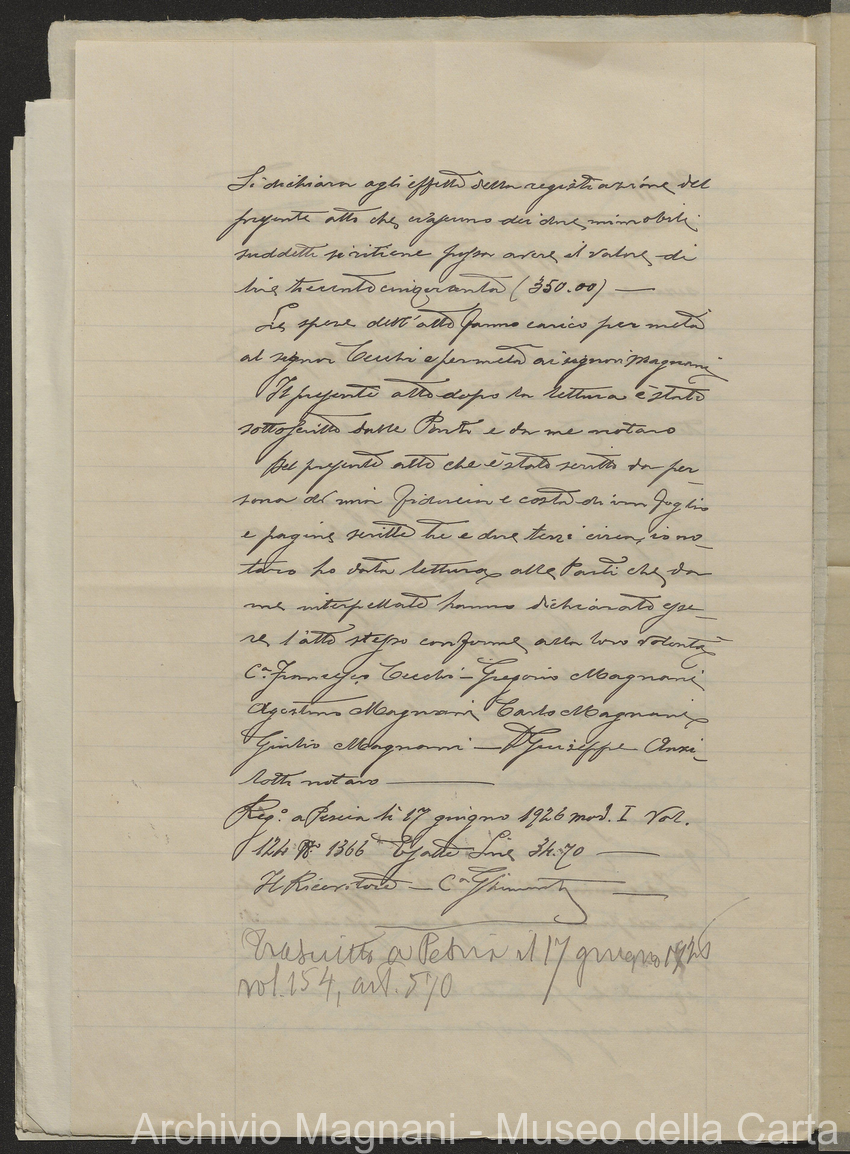 Si dichiara agli effetti della registrazione del
presente atto che ciascuno dei due immobili
suddetti si ritiene possa avere il valore di
lire trecentocinquanta (350.00) —
Le spese dell'atto fanno carico per metà
al signor Cecchi e per metà ai signori Magnani
Il presente atto dopo la lettura è stato
sottoscritto dalle Parti e da me notaro
Del presente atto che è stato scritto da per-
sona di mia fiducia e costa di un foglio
e pagine scritte tre e due terzi circa, io no-
taro ho data lettura alle Parti che da
me interpellate hanno dichiarato esse-
re l'atto stesso conforme alla loro volontà
C. Francesco Cecchi - Gregorio Magnani
Agostino Magnani Carlo Magnani
Giulio Magnani - Dr Giuseppe Anzi-
lotti notaro —
Reg.º a Pescia li 17 giugno 1926 mod. I Vol.
124 N.º 1366 Esatte Lire 34.70 —
Il Ricevitore —
Trascritto a Pescia il 17 giugno 1926
vol. 154, art. 570
Archivio Magnani - Museo della Carta